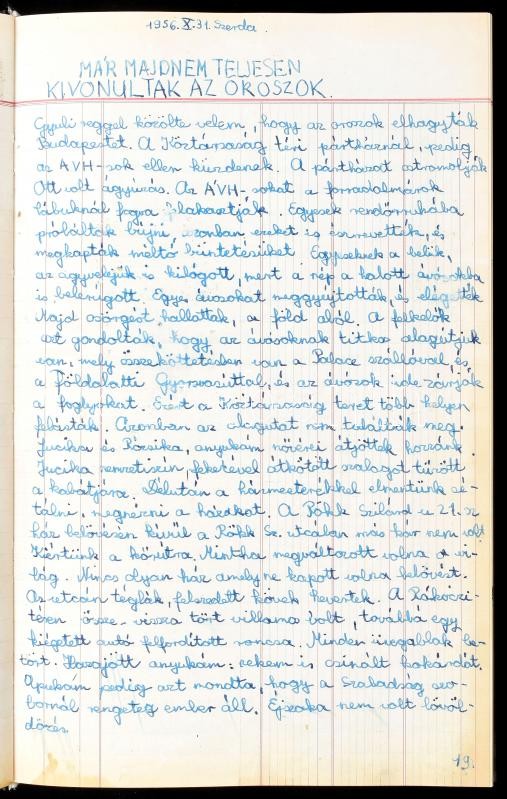 1956. X. 31. Szerda.
MÁR MAJDNEM TELJESEN
KIVONULTAK AZ OROSZOK.
Gyuli reggel közölte velem, hogy az oroszok elhagyták
Budapestet. A Köztársaság téri pártháznál, pedig
az ÁVH-sok ellen küzdenek. A pártházat ostromolják
Ott volt ágyúzás. Az ÁVH-sokat a forradalmárok
lábuknál fogva felakasztják. Egyesek rendőrruhába
próbáltak bújni, azonban ezeket is észrevették, és
megkapták méltó büntetésüket. Egyeseknek a belük,
az agyvelejük is kilógott, mert a nép a halott ávósokba
is belerúgott. Egyes ávósokat meggyujtották, és elégették
Majd csörgést hallottak, a föld alól. A felkelők
azt gondolták, hogy az ávósoknak titkos alagútjuk
van, mely összeköttetésben van a Palace szállóval és
a Földalatti Gyorsvasúttal, és az ávósok ide zárják
a foglyokat. Ezért a Köztársaság teret több helyen
felásták. Azonban az alagutat nem találták meg.
Jucika és Rózsika, anyukám nővérei átjöttek hozzánk.
Jucika nemzetiszín, feketével átkötött szalagot tűzött
a kabátjára. Délután a házmesterékkel elmentünk sé-
tálni, megnézni a házakat. A Rökk Szilárd u 21. sz
ház belövésén kívül a Rökk Sz. utcában más kár nem volt
Kiértünk a körútra. Mintha megváltozott volna a vi-
lág. Nincs olyan ház amely ne kapott volna belövést.
Az utcán téglák, felszedett kövek hevertek. A Rákóczi-
téren össze-vissza tört villamos volt, továbbá egy
kiégetett autó felfordított roncsa. Minden üvegablak be-
tört. Hazajött anyukám: nekem is csinált kokárdát.
Apukám pedig azt mondta, hogy a Szabadság szo-
bornál rengeteg ember áll. Éjszaka nem volt lövöl-
dözés.
19.